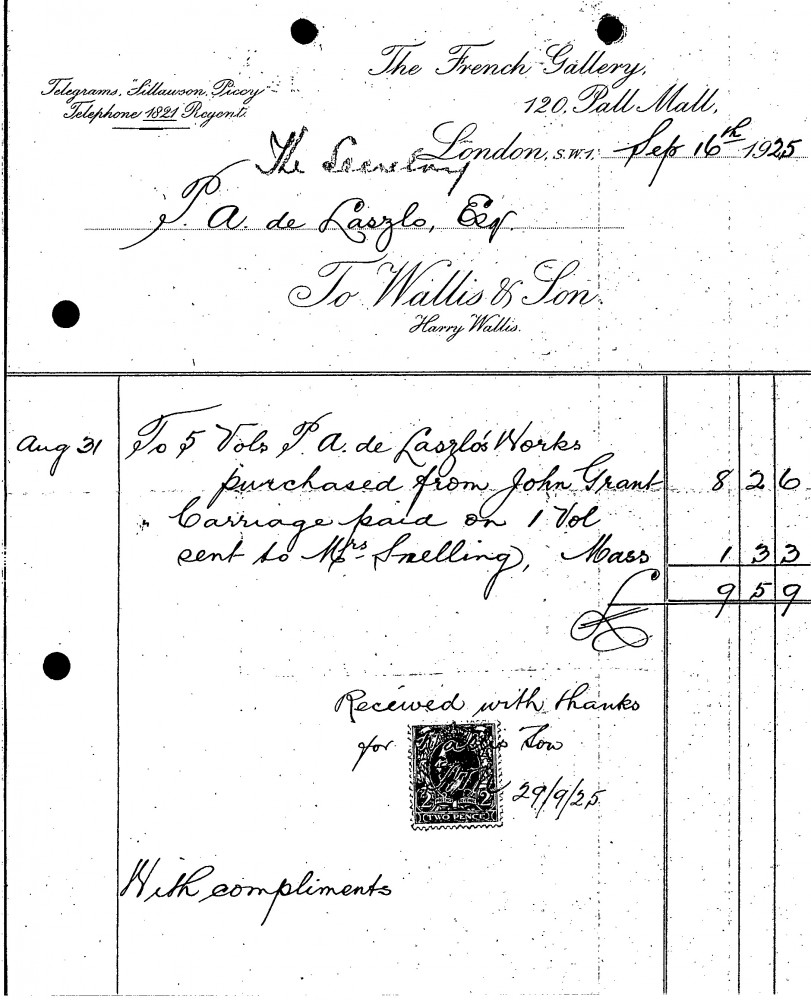 The French Gallery,
120, Pall Mall,
Telegrams, "Sillawson, Piccy"
Telephone 1821 Regent.
London, S.W.1. Sep 16th 1925
The Secretary
P. A. de Laszlo, Esq.
To Wallis & Son.
Harry Wallis.
Aug 31 To 5 Vols P. A. de Laszlo's Works
purchased from John Grant 8 2 6
" Carriage paid on 1 Vol
sent to Mrs Snelling, Mass 1 3 3
£ 9 5 9
Received with thanks
for Wallis & Son
29/9/25
2 2
TWO PENCE
With compliments